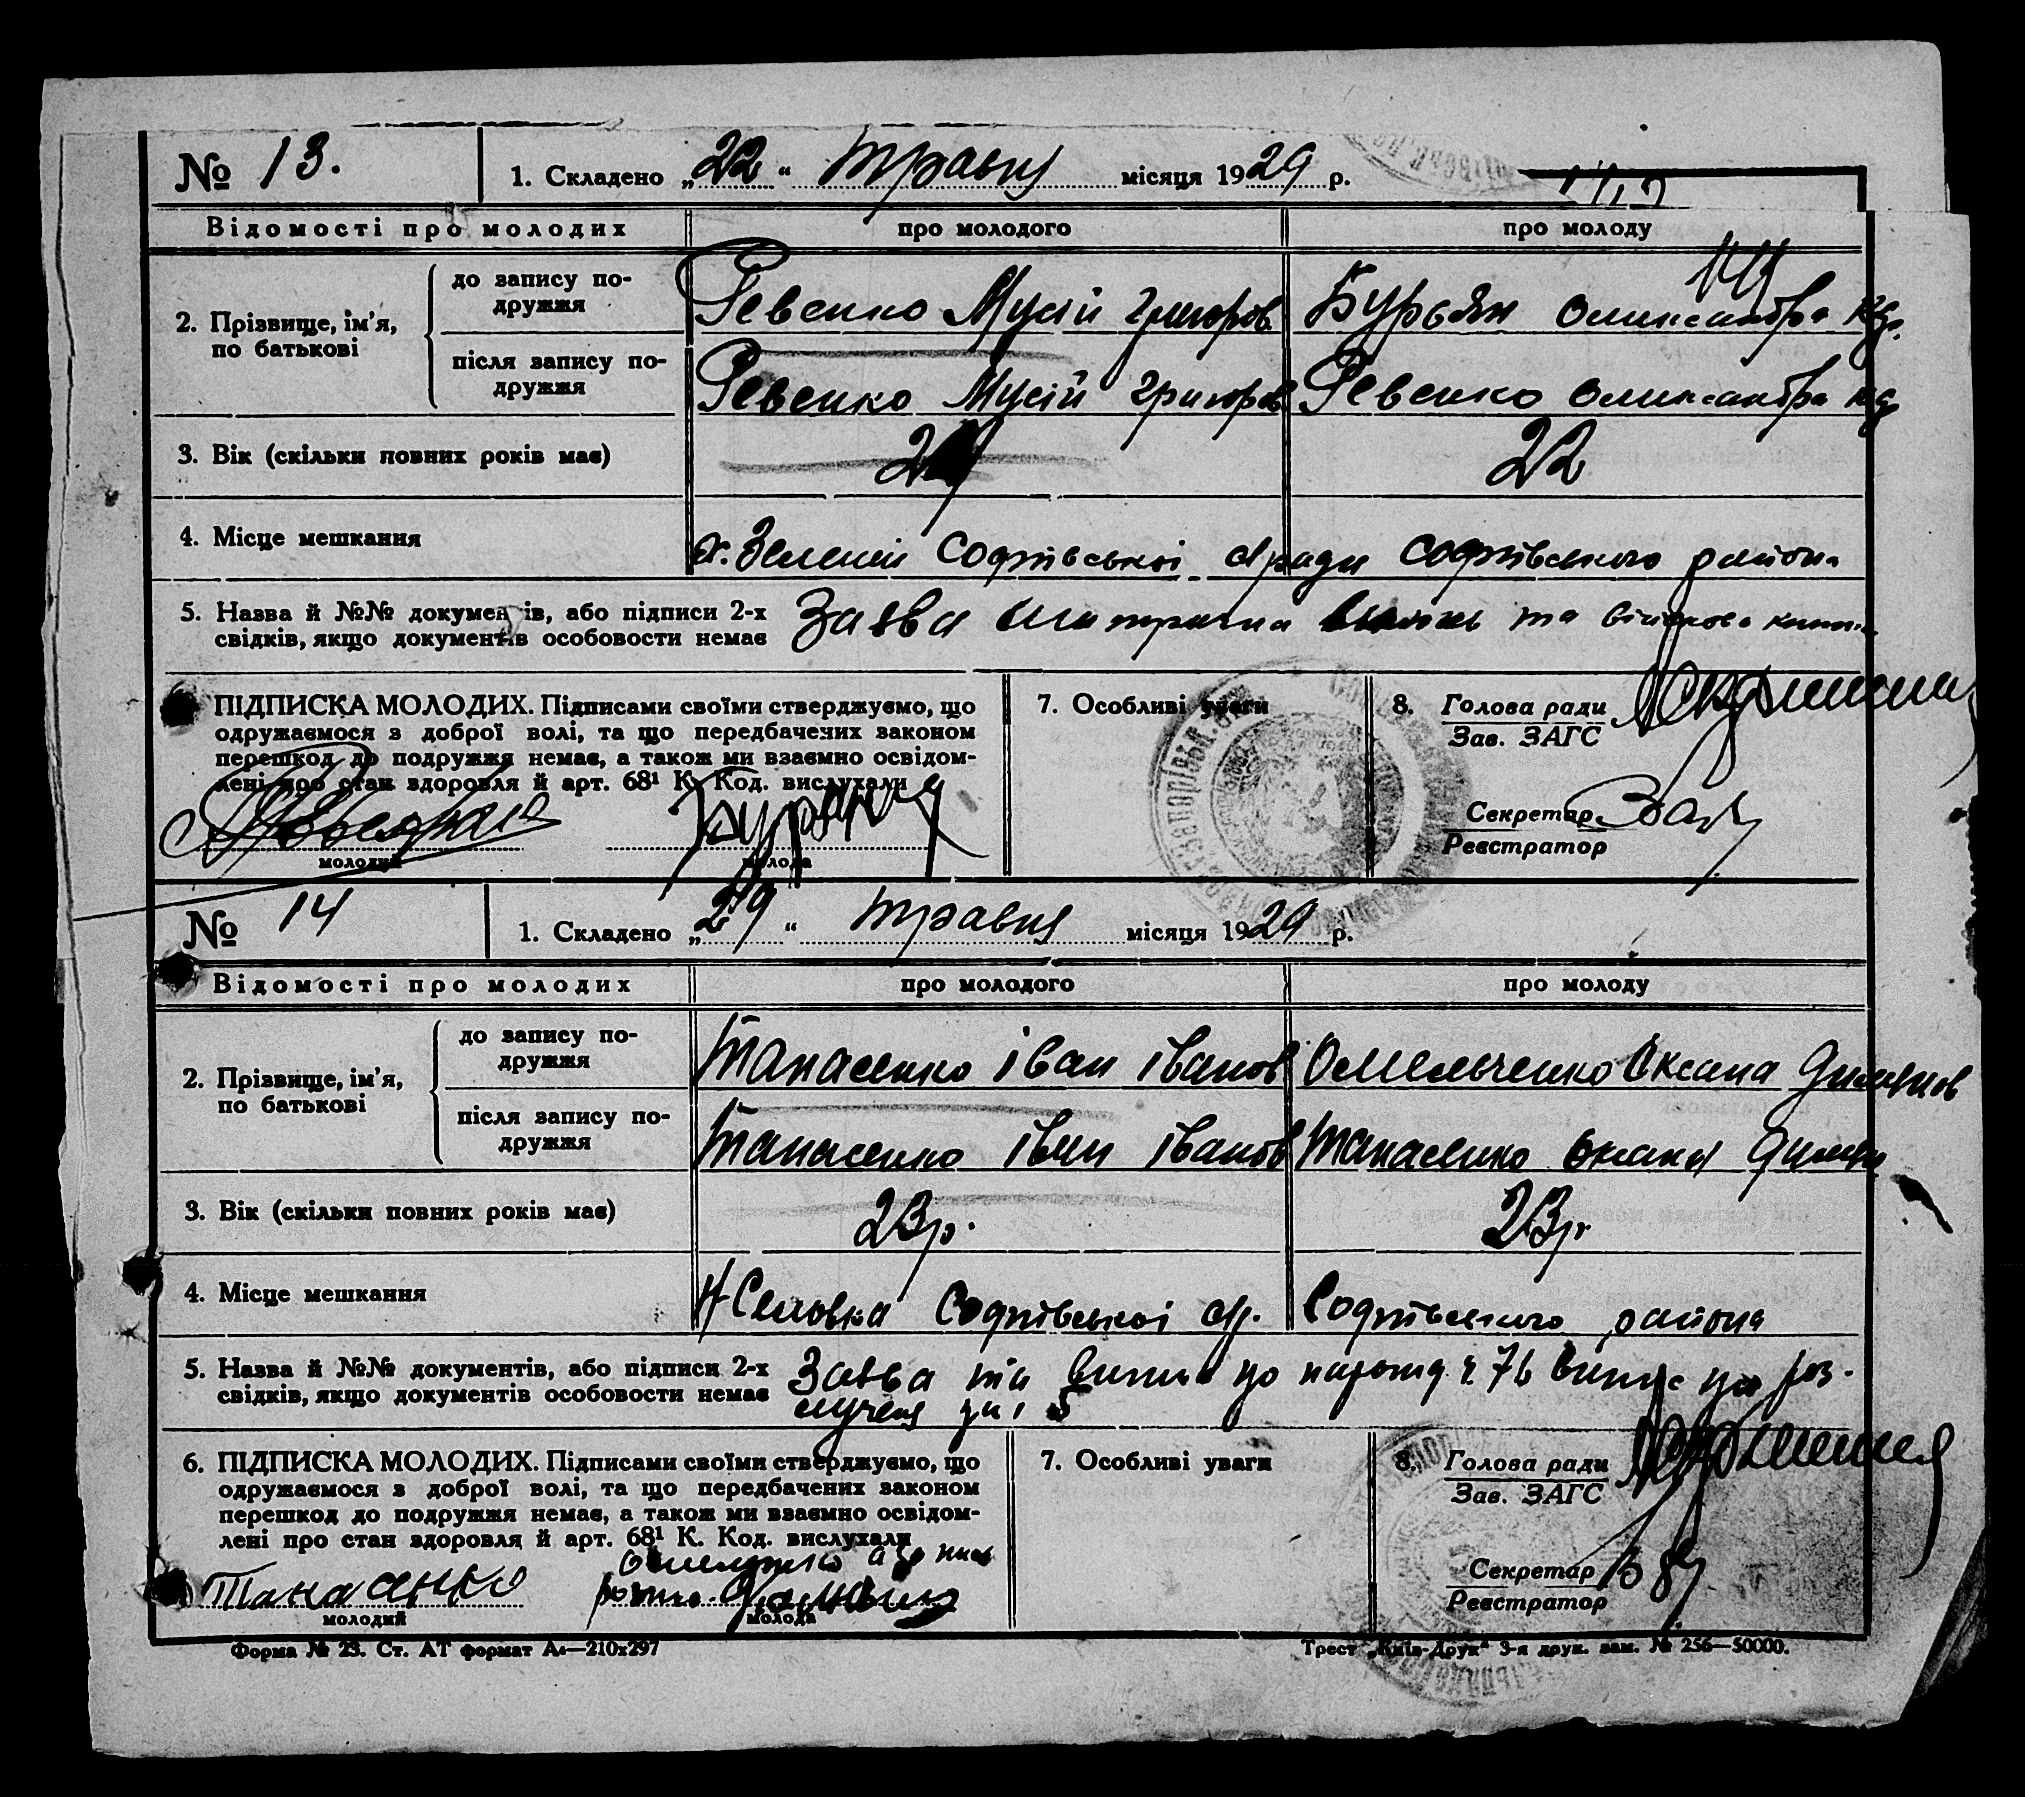 № 13. 1. Складено „22“ травня місяця 1929 р.
Відомості про молодих про молодого про молоду
2. Прізвище, ім’я, по батькові
до запису подружжя Ревенко Мусій Григоров. Бурьян Олександра
після запису подружжя Ревенко Мусій Григоров Ревенко Олександра
3. Вік (скільки повних років має) 22
4. Місце мешкання х. Зелений Софіівської с/ради Софіівського района
5. Назва й №№ документів, або підписи 2-х Заява та військова
свідків, якщо документів особовости немає
ПІДПИСКА МОЛОДИХ. Підписами своїми стверджуємо, що
одружаємося з доброї волі, та що передбачених законом
перешкод до подружжя немає, а також ми взаємно освідом-
лені про стан здоровля й арт. 68¹ К. Код. вислухали
молодий молода
7. Особливі уваги
8. Голова ради
Зав. ЗАГС
Секретар
Реєстратор
№ 14 1. Складено „29“ травня місяця 1929 р.
Відомості про молодих про молодого про молоду
2. Прізвище, ім’я, по батькові
до запису подружжя Танасенко Іван Іванов Омельченко Оксана
після запису подружжя Танасенко Іван Іванов Танасенко Оксана
3. Вік (скільки повних років має) 23р. 23р.
4. Місце мешкання Софіівської с/р. Софіівського района
5. Назва й №№ документів, або підписи 2-х Заява та
свідків, якщо документів особовости немає
6. ПІДПИСКА МОЛОДИХ. Підписами своїми стверджуємо, що
одружаємося з доброї волі, та що передбачених законом
перешкод до подружжя немає, а також ми взаємно освідом-
лені про стан здоровля й арт. 68¹ К. Код. вислухали
Танасенко
молодий молода
7. Особливі уваги
8. Голова ради
Зав. ЗАГС
Секретар
Реєстратор
Форма № 23. Ст. АТ формат А₄—210x297 Трест „Київ-Друк“ 3-я друк. зам. № 256—50000.